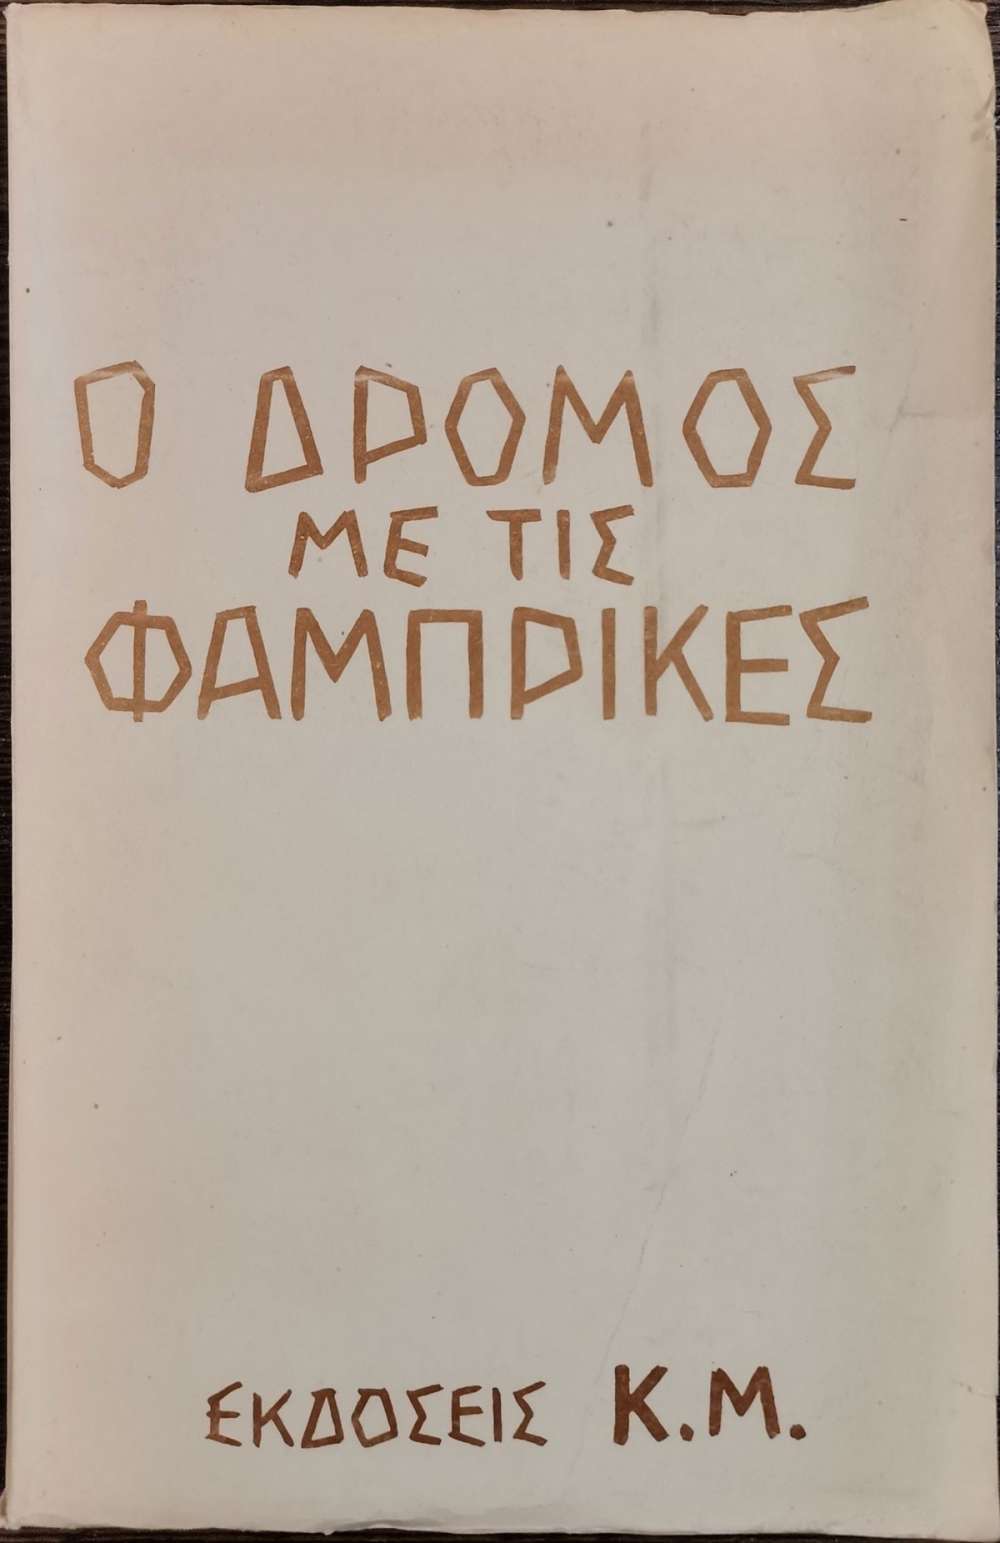 Ο ΔΡΟΜΟΣ
ΜΕ ΤΙΣ
ΦΑΜΠΡΙΚΕΣ
ΕΚΔΟΣΕΙΣ Κ.Μ.